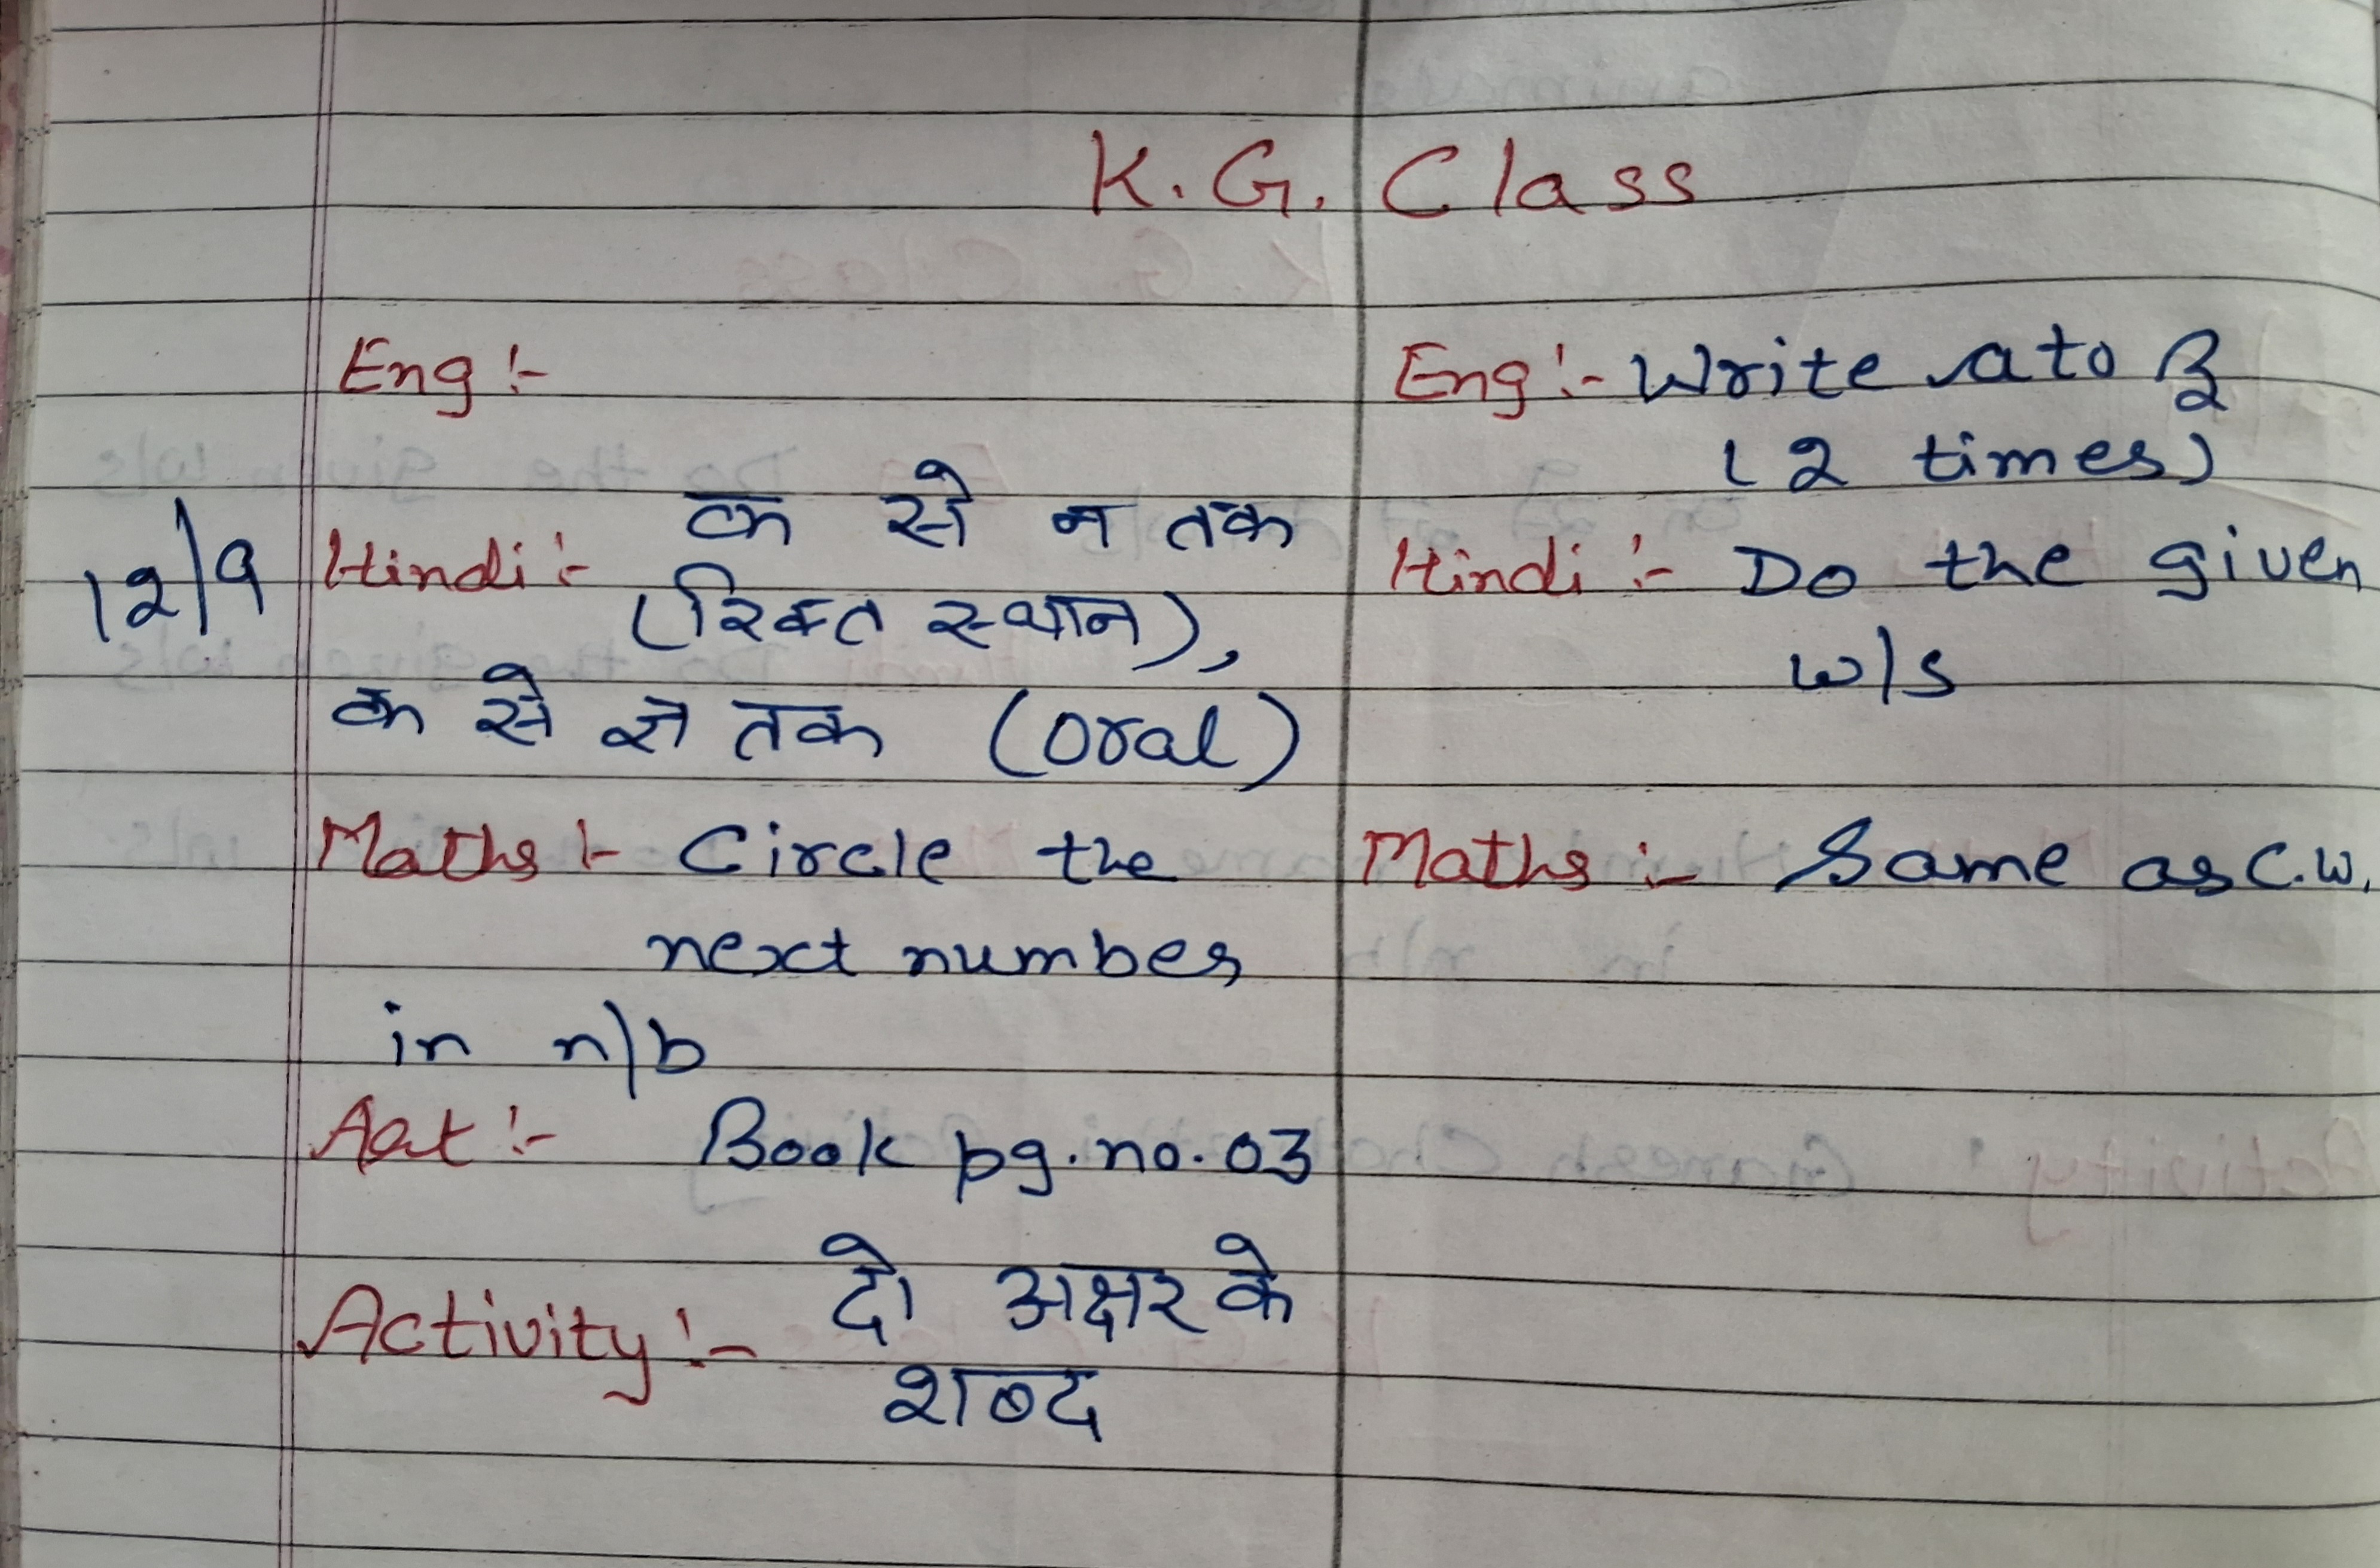 K. G. Class
Eng :-
12/9 Hindi :- क से न तक
(रिक्त स्थान),
क से ज्ञ तक (oral)
Maths :- Circle the
next number
in n/b
Art :- Book pg. no. 03
Activity :- दो अक्षर के
शब्द
Eng :- Write a to z
(2 times)
Hindi :- Do the given
w/s
Maths :- Same as C.W.